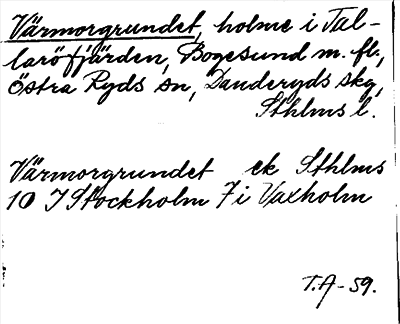 Värmorgrundet, holme i Tal-
laröfjärden, Bogesund m. fl.,
Östra Ryds sn, Danderyds skg,
Sthlms l.
Värmorgrundet ek Sthlms
10 I Stockholm 7 i Vaxholm
T.A-59.